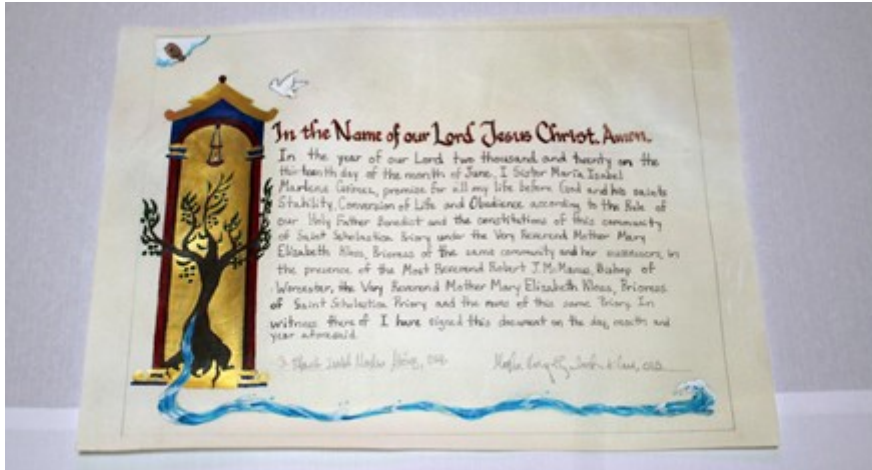 In the Name of our Lord Jesus Christ. Amen.
In the year of our Lord two thousand and twenty on the
thirteenth day of the month of June, I Sister María Isabel
Marlene promise for all my life before God and his saints
Stability, Conversion of Life and Obedience according to the Rule of
our Holy Father Benedict and the constitutions of this community
of Saint Scholastica Priory under the Very Reverend Mother Mary
Elizabeth Kloss, Prioress of the same community and her successors, in
the presence of the Most Reverend Robert J. McManus, Bishop of
Worcester, the Very Reverend Mother Mary Elizabeth Kloss, Prioress
of Saint Scholastica Priory and the nuns of this same Priory. In
witness there of I have signed this document on the day, month and
year aforesaid.